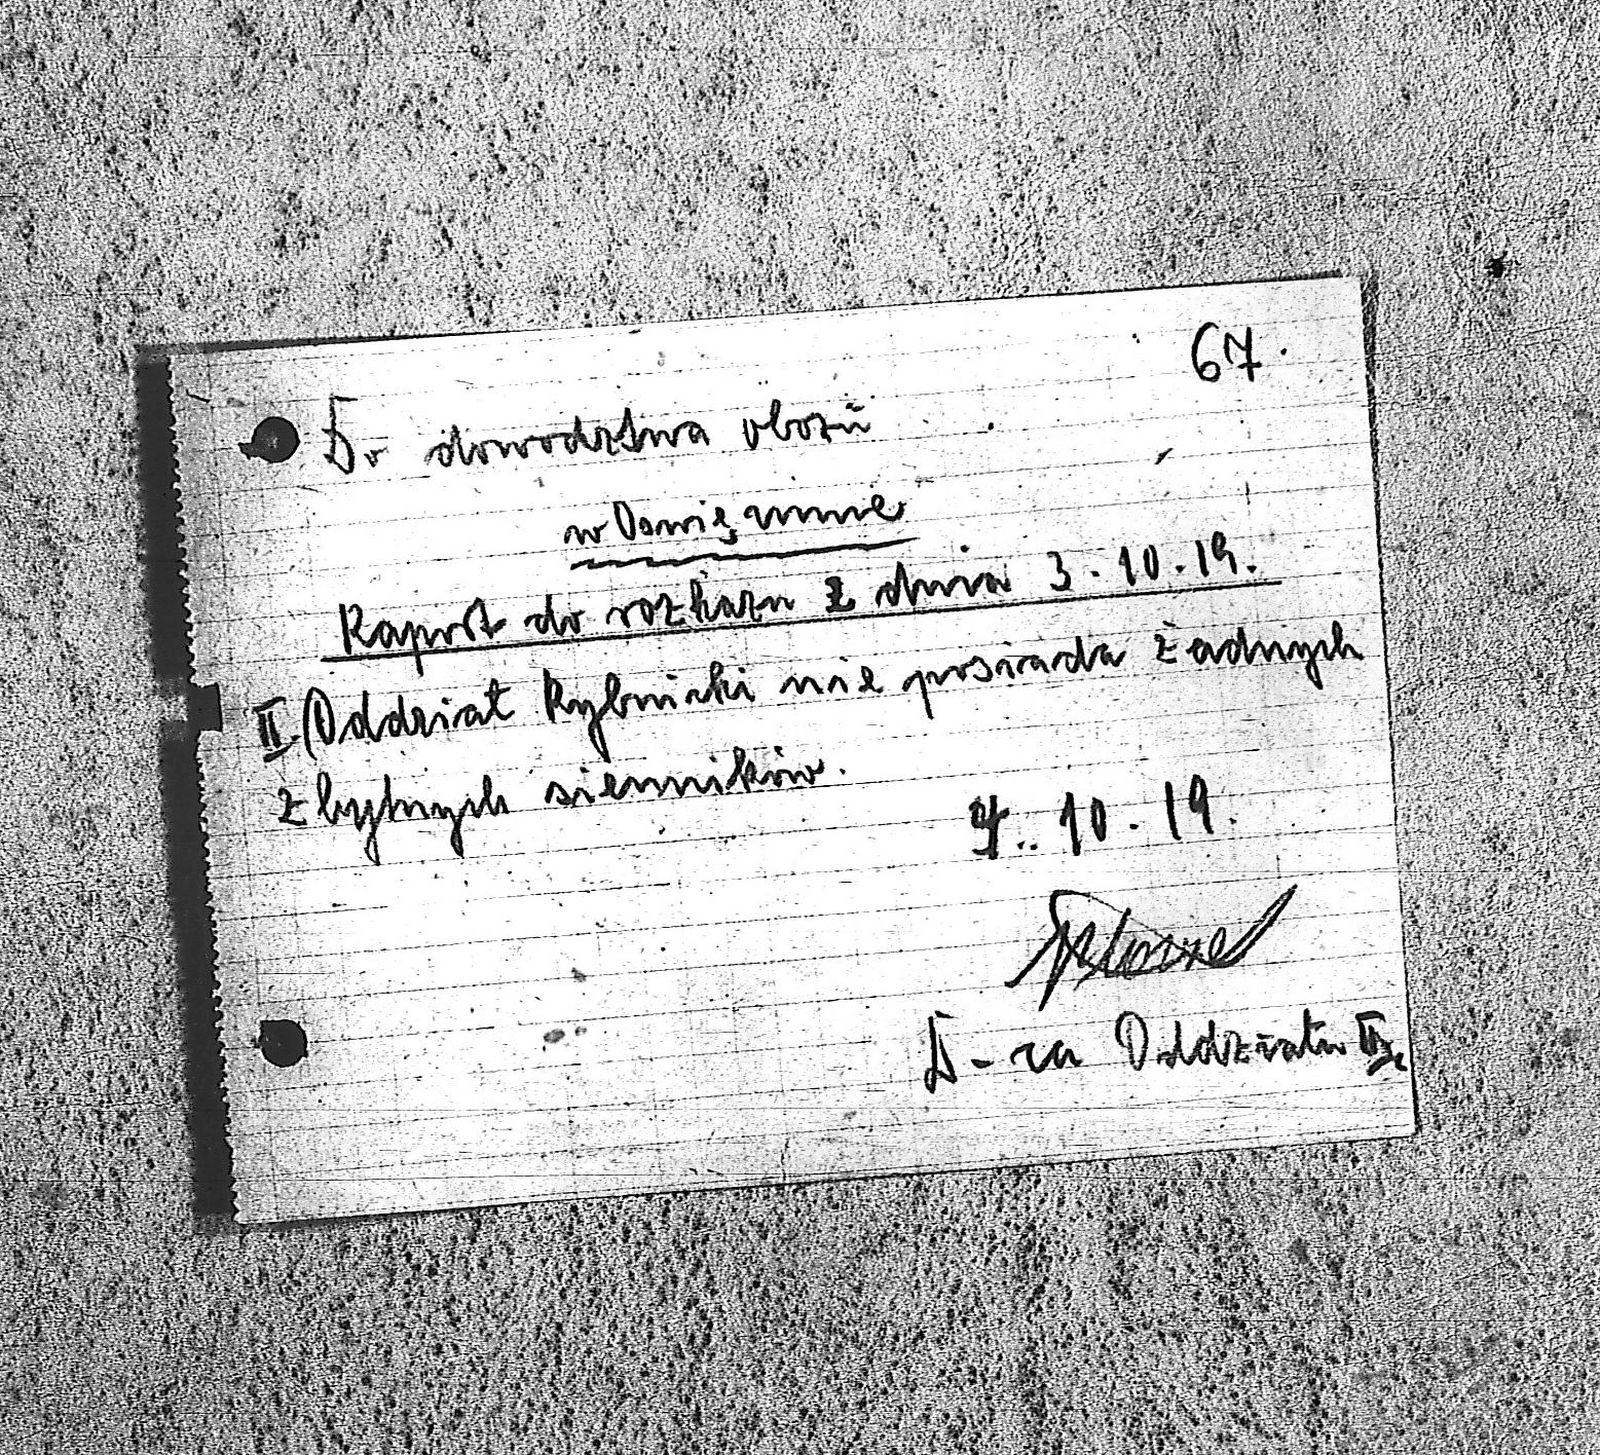 67.
Do dowodztwa obozu
w Oswięcimie
Raport do rozkazu z dnia 3.10.19.
II. Oddział Rybnicki nie posiada żadnych
zbytnych sienników.
4.10.19.
D-ca Oddziału II.